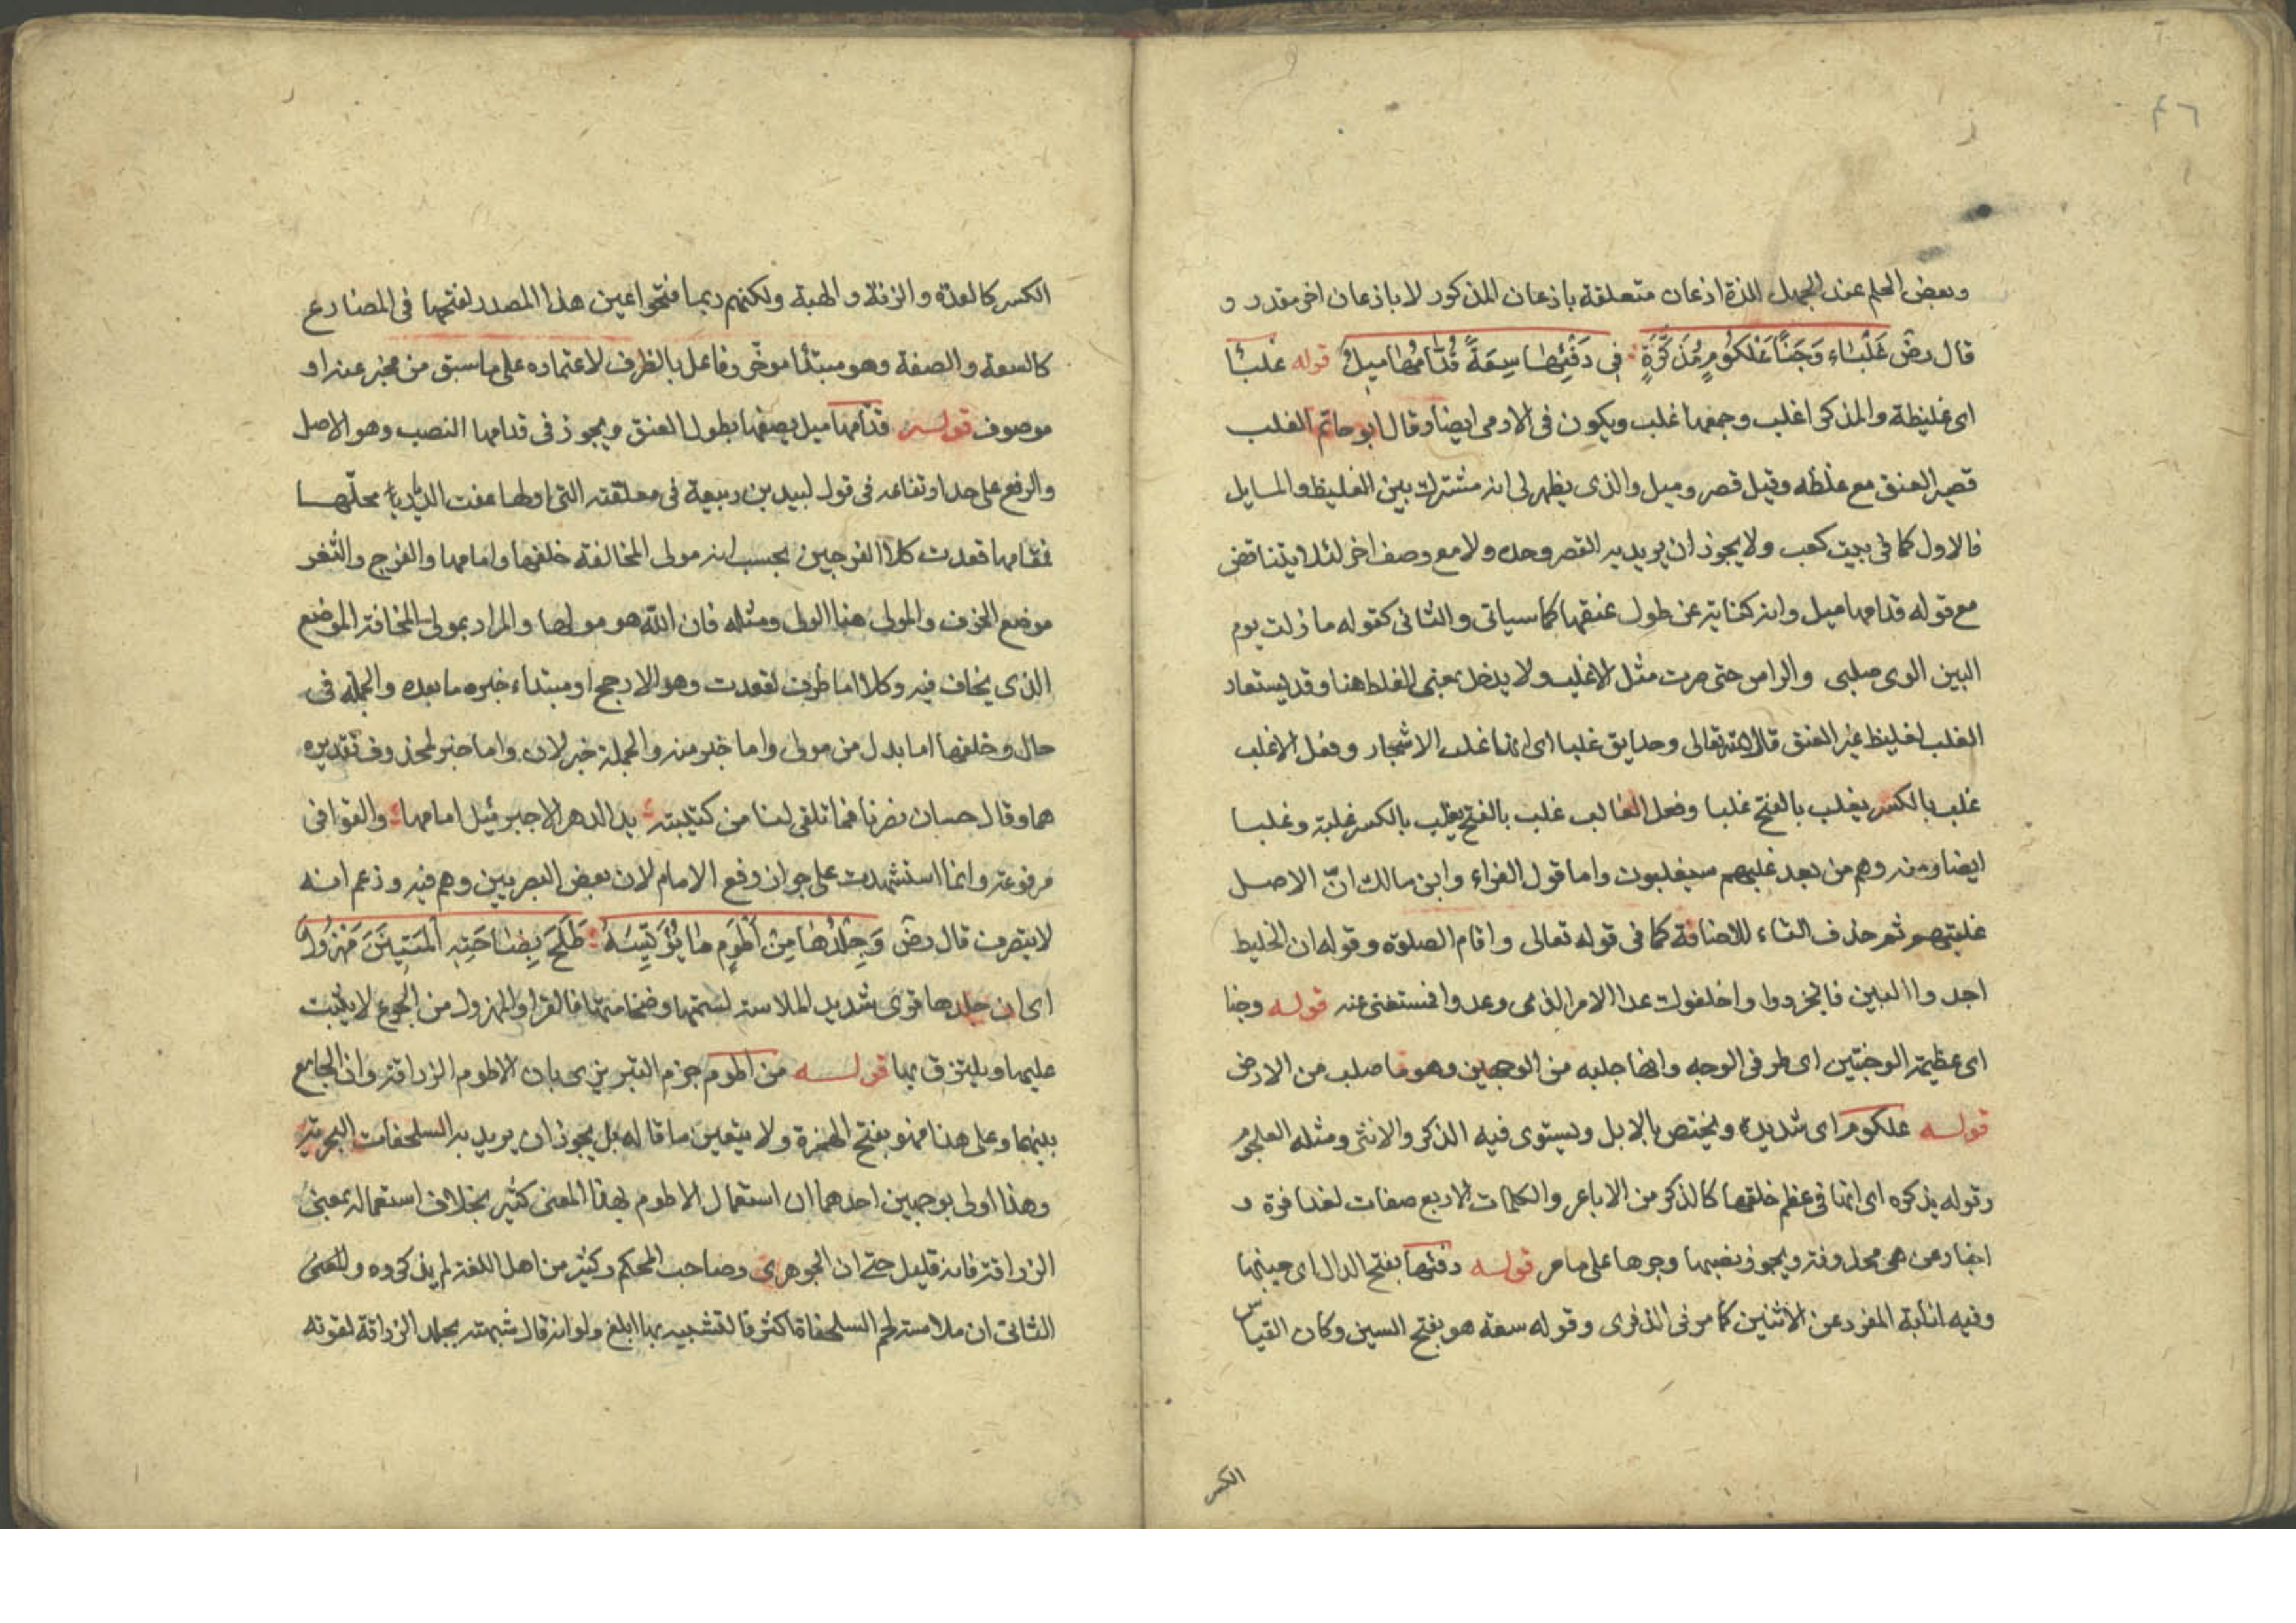 ٤٦
وبعض الحلم عند الجهل للذلة اذعان متعلقة باذعان المذكور لا باذعان اخر مقدر و
قال رضّ غَلْبَاء وَجَنَّا عَلْكُومٍ مُذَكَّرَةٍ في دَفِّهَا سِعَةً قُدَّامُهَا مِيلُ قوله غلبا
اى غليظة والمذكر اغلب وجمعها غلب ويكون فى الادمى ايضا وقال ابو حاتم الغلب
قصير العنق مع غلظه وقيل قصر وميل والذى يظهر لى انه مشترك بين الغليظ والمايل
فالاول كما فى بيت كعب ولا يجوز ان يريد به القصر وحده ولا مع وصف اخر لئلا يتناقض
مع قوله قدامها ميل وانه كناية عن طول عنقها كما سياتى والثانى كقوله ما زلت يوم
البين الوى صلبى والراس حتى صرت مثل الاغلب ولا يدخل بمعنى الغلط هنا وقد يستعار
الغلب لغليظ غير العنق قال الله تعالى وحدايق غلبا اى انها غلب الاشجار وفعل الاغلب
غلب بالكسر يغلب بالفتح غلبا وفعل الغالب غلب بالفتح يغلب بالكسر غلبة وغلبا
ايضا ومنه وهم من بعد غلبهم سيغلبون واما قول الفراء وابن مالك انّ الاصل
غلبتهم ثم حذف التاء للاضافة كما فى قوله تعالى واقام الصلوة وقوله ان الخليط
اجدوا البين فانجردوا واخلفوك عدا الامر الذى وعدوا فمستغنى عنه قوله وجنا
اى عظيمة الوجنتين اى طرفى الوجه وانها صلبه من الوجين وهو ما صلب من الارض
قوله علكوم اى شديدة ويختص بالابل ويستوى فيه الذكر والانثى ومثله العلجوم
وقوله يذكره اى انها فى عظم خلقها كالذكر من الاباعر والكلمات الاربع صفات لغدافرة و
اخبار عن هى محذوفة ويجوز نصبها وجرها على ما مر قوله دفئها بفتح الدال اى جنبها
وفيه انابة المفرد عن الاثنين كما مر فى الذفرى وقوله سعة هو بفتح السين وكان القياس
الكسر
الكسر كالعدة والزنة والهبة ولكنهم ربما فتحوا عين هذا المصدر لفتحها فى المضارع
كالسعة والضعة وهو مبتدأ موخّر وفاعل بالظرف لاعتماده على ما سبق من مخبر عنه او
موصوف قوله قدّامها ميل يصفها بطول العنق ويجوز فى قدامها النصب وهو الاصل
والرفع على حد ارتفاعه فى قول لبيد بن ربيعة فى معلقته التى اولها عفت الديار محلّها
فمقامها فغدت كلا الفرجين تحسب انه مولى المخافة خلفها وامامها والفرج والثغر
موضع الخوف والمولى هنا الولى ومثله فان الله هو مولاه والمراد بمولى المخافة الموضع
الذى يخاف فيه وكلا اما ظرف لغدت وهو الارجح او مبتداء خبره ما بعده والجملة فى
حال وخلفها اما بدل من مولى واما خبر منه والجملة خبر لان واما خبر لمحذوف تقديره
هما وقال حسان نصرنا فما تلقى لنا من كتيبته يد الدهر الا جبرئيل امامها والقوافى
مرفوعة وانما استشهدت على جواز رفع الامام لان بعض البصريين وهم فيه وزعم انه
لا يتصرف قال رضّ وَجِلْدُهَا مِنْ أَطُومٍ مَا يُؤَيِّسُهُ طَلْحٌ بِضَاحِيَةِ الْمَتْنَيْنِ مَهْزُولُ
اى ان جلدها قوى شديد الملاسة لسمنها وضخامتها فالقراد المهزول من الجوع لا يثبت
عليها ويلتزق بها قوله من اطوم جزم التبريزى بان الاطوم الزرافة وان الجامع
بينهما وعلى هذا فهو بفتح الهمزة ولا يتعين ما قاله بل يجوز ان يريد به السلحفات البحرية
وهذا اولى بوجهين احدهما ان استعمال الاطوم بهذا المعنى كثير بخلاف استعماله بمعنى
الزرافة فانه قليل حتى ان الجوهرى وصاحب المحكم وكثير من اهل اللغة لم يذكروه والمعنى
الثانى ان ملاسته لجم السلحفاة اكثر فالتشبيه بها ابلغ ولو انه قال شبهته بجلد الزرافة لقوته